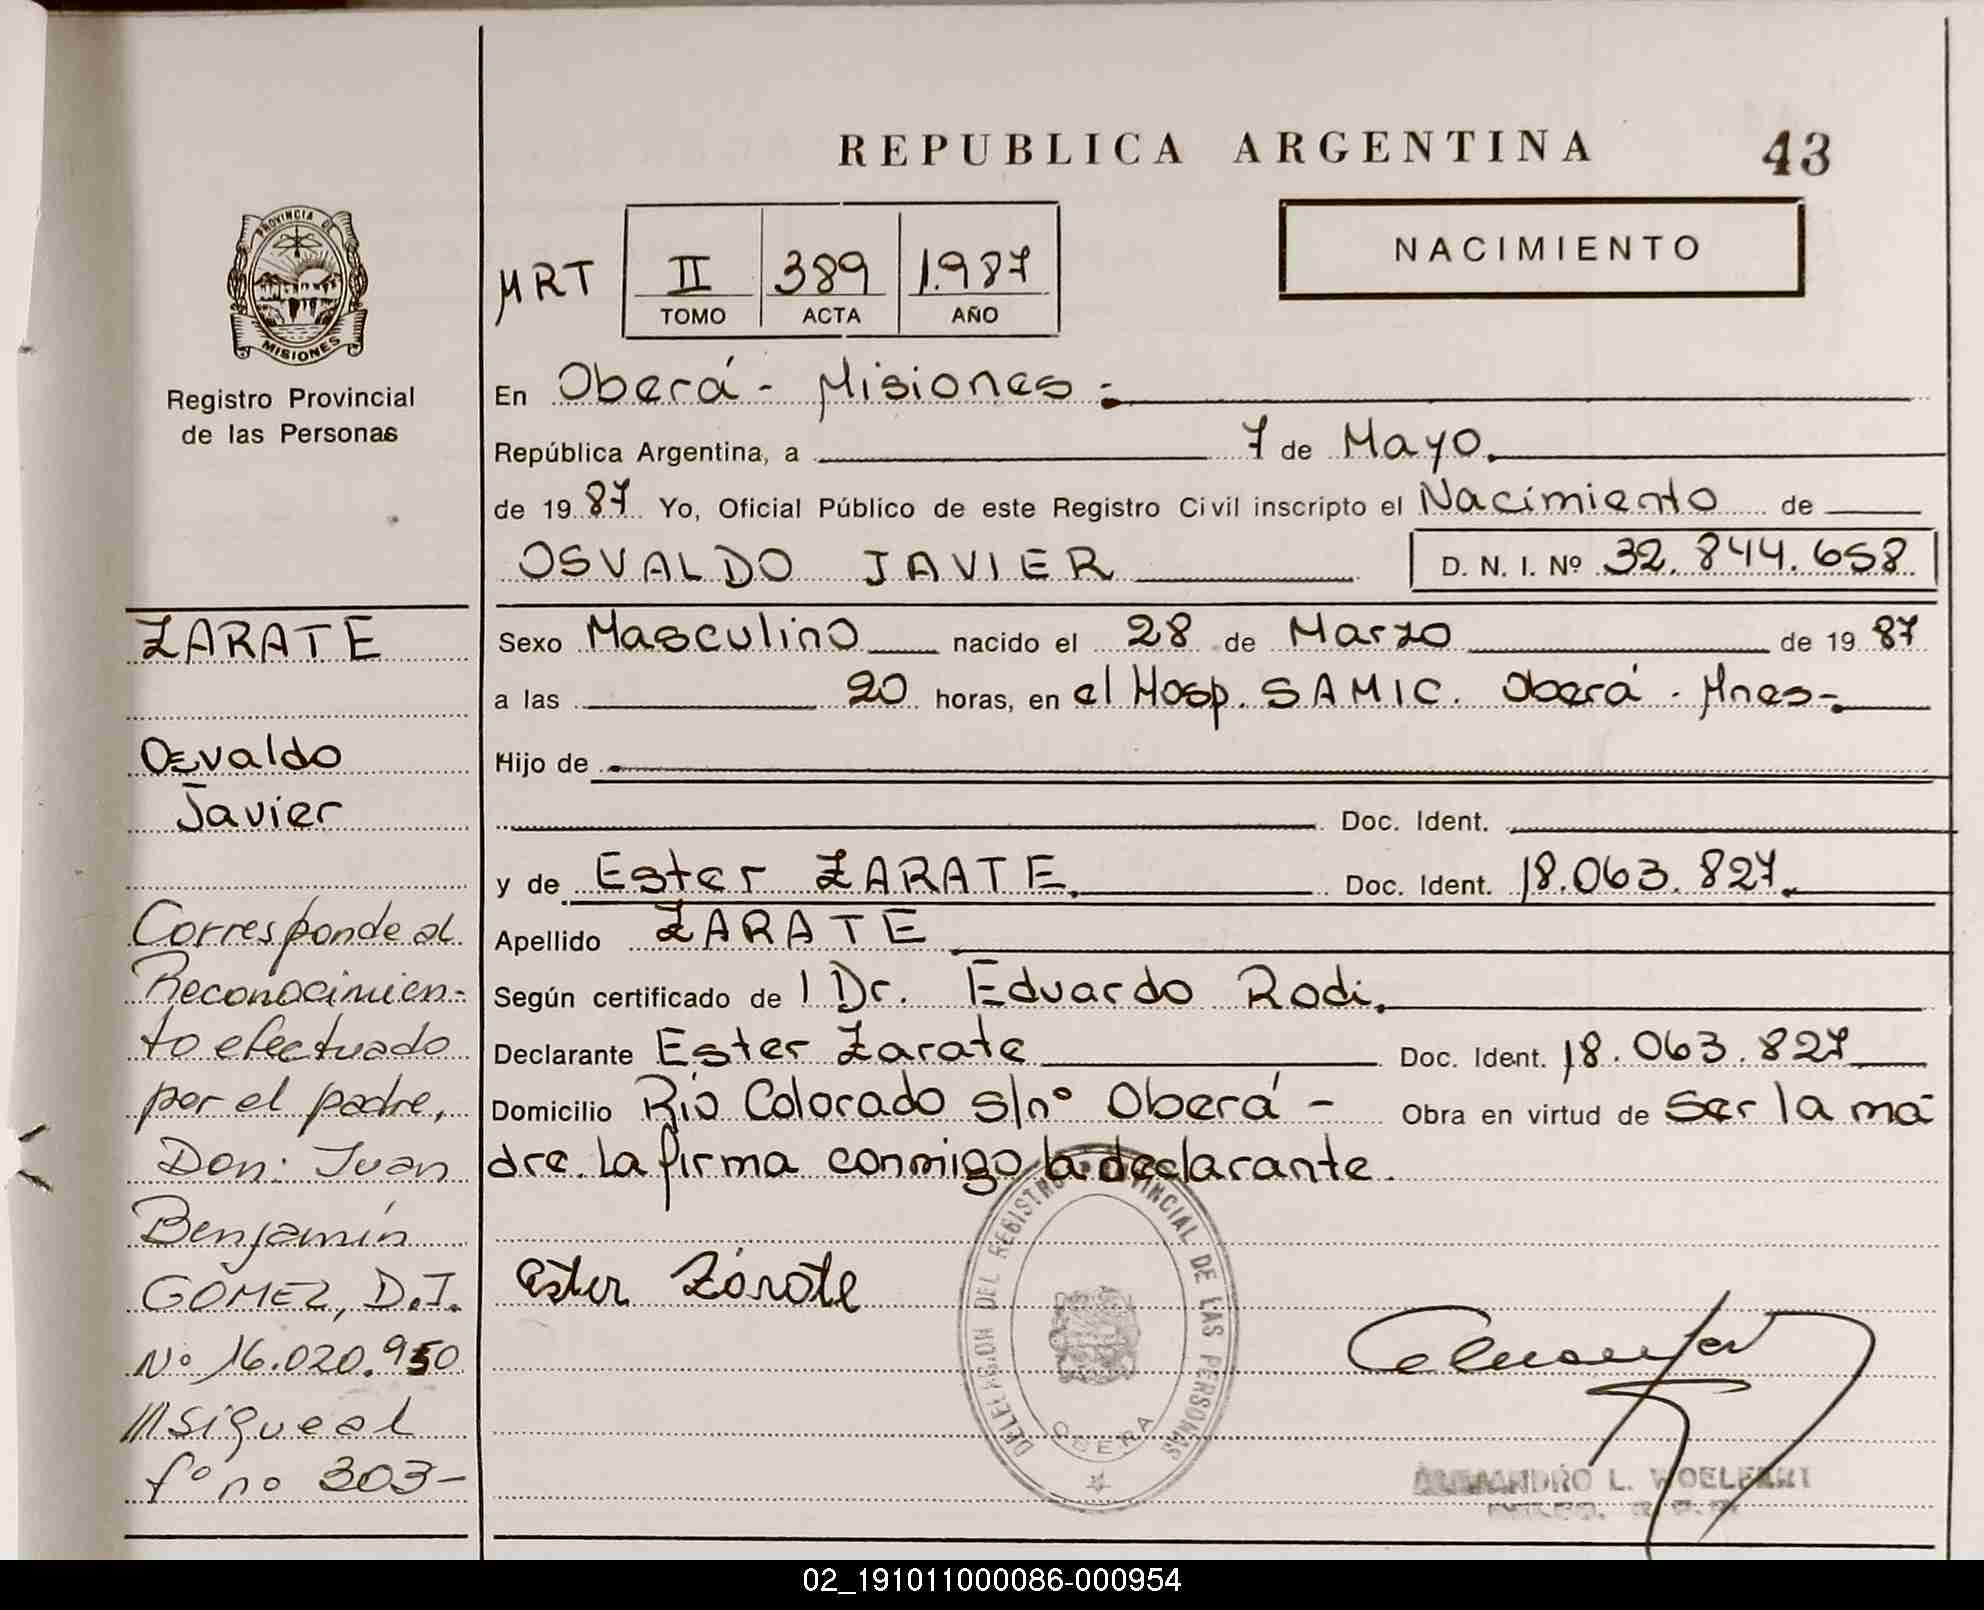 REPUBLICA ARGENTINA 43
NACIMIENTO
MRT II 389 1.987
TOMO ACTA AÑO
PROVINCIA DE
MISIONES
Registro Provincial
de las Personas
En Oberá - Misiones -
República Argentina, a 7 de Mayo
de 1987 Yo, Oficial Público de este Registro Civil inscripto el Nacimiento de
OSVALDO JAVIER D. N. I. Nº 32.844.658
Sexo Masculino nacido el 28 de Marzo de 1987
a las 20 horas, en el Hosp. SAMIC. Oberá - Mnes-
Hijo de
Doc. Ident.
y de Ester ZARATE. Doc. Ident. 18.063.827
Apellido ZARATE
Según certificado de l Dr. Eduardo Rodi.
Declarante Ester Zarate Doc. Ident. 18.063.827
Domicilio Río Colorado s/nº Oberá - Obra en virtud de ser la ma
dre. La firma conmigo la declarante.
Ester Zárate
DELEGACION DEL REGISTRO PROVINCIAL DE LAS PERSONAS
OBERA
L. WOELFERT
ZARATE
Osvaldo
Javier
Corresponde al
Reconocimien-
to efectuado
por el padre,
Don: Juan
Benjamín
GOMEZ, D.I.
Nº 16.020.950
///sigue al
fº nº 303-
02_191011000086-000954